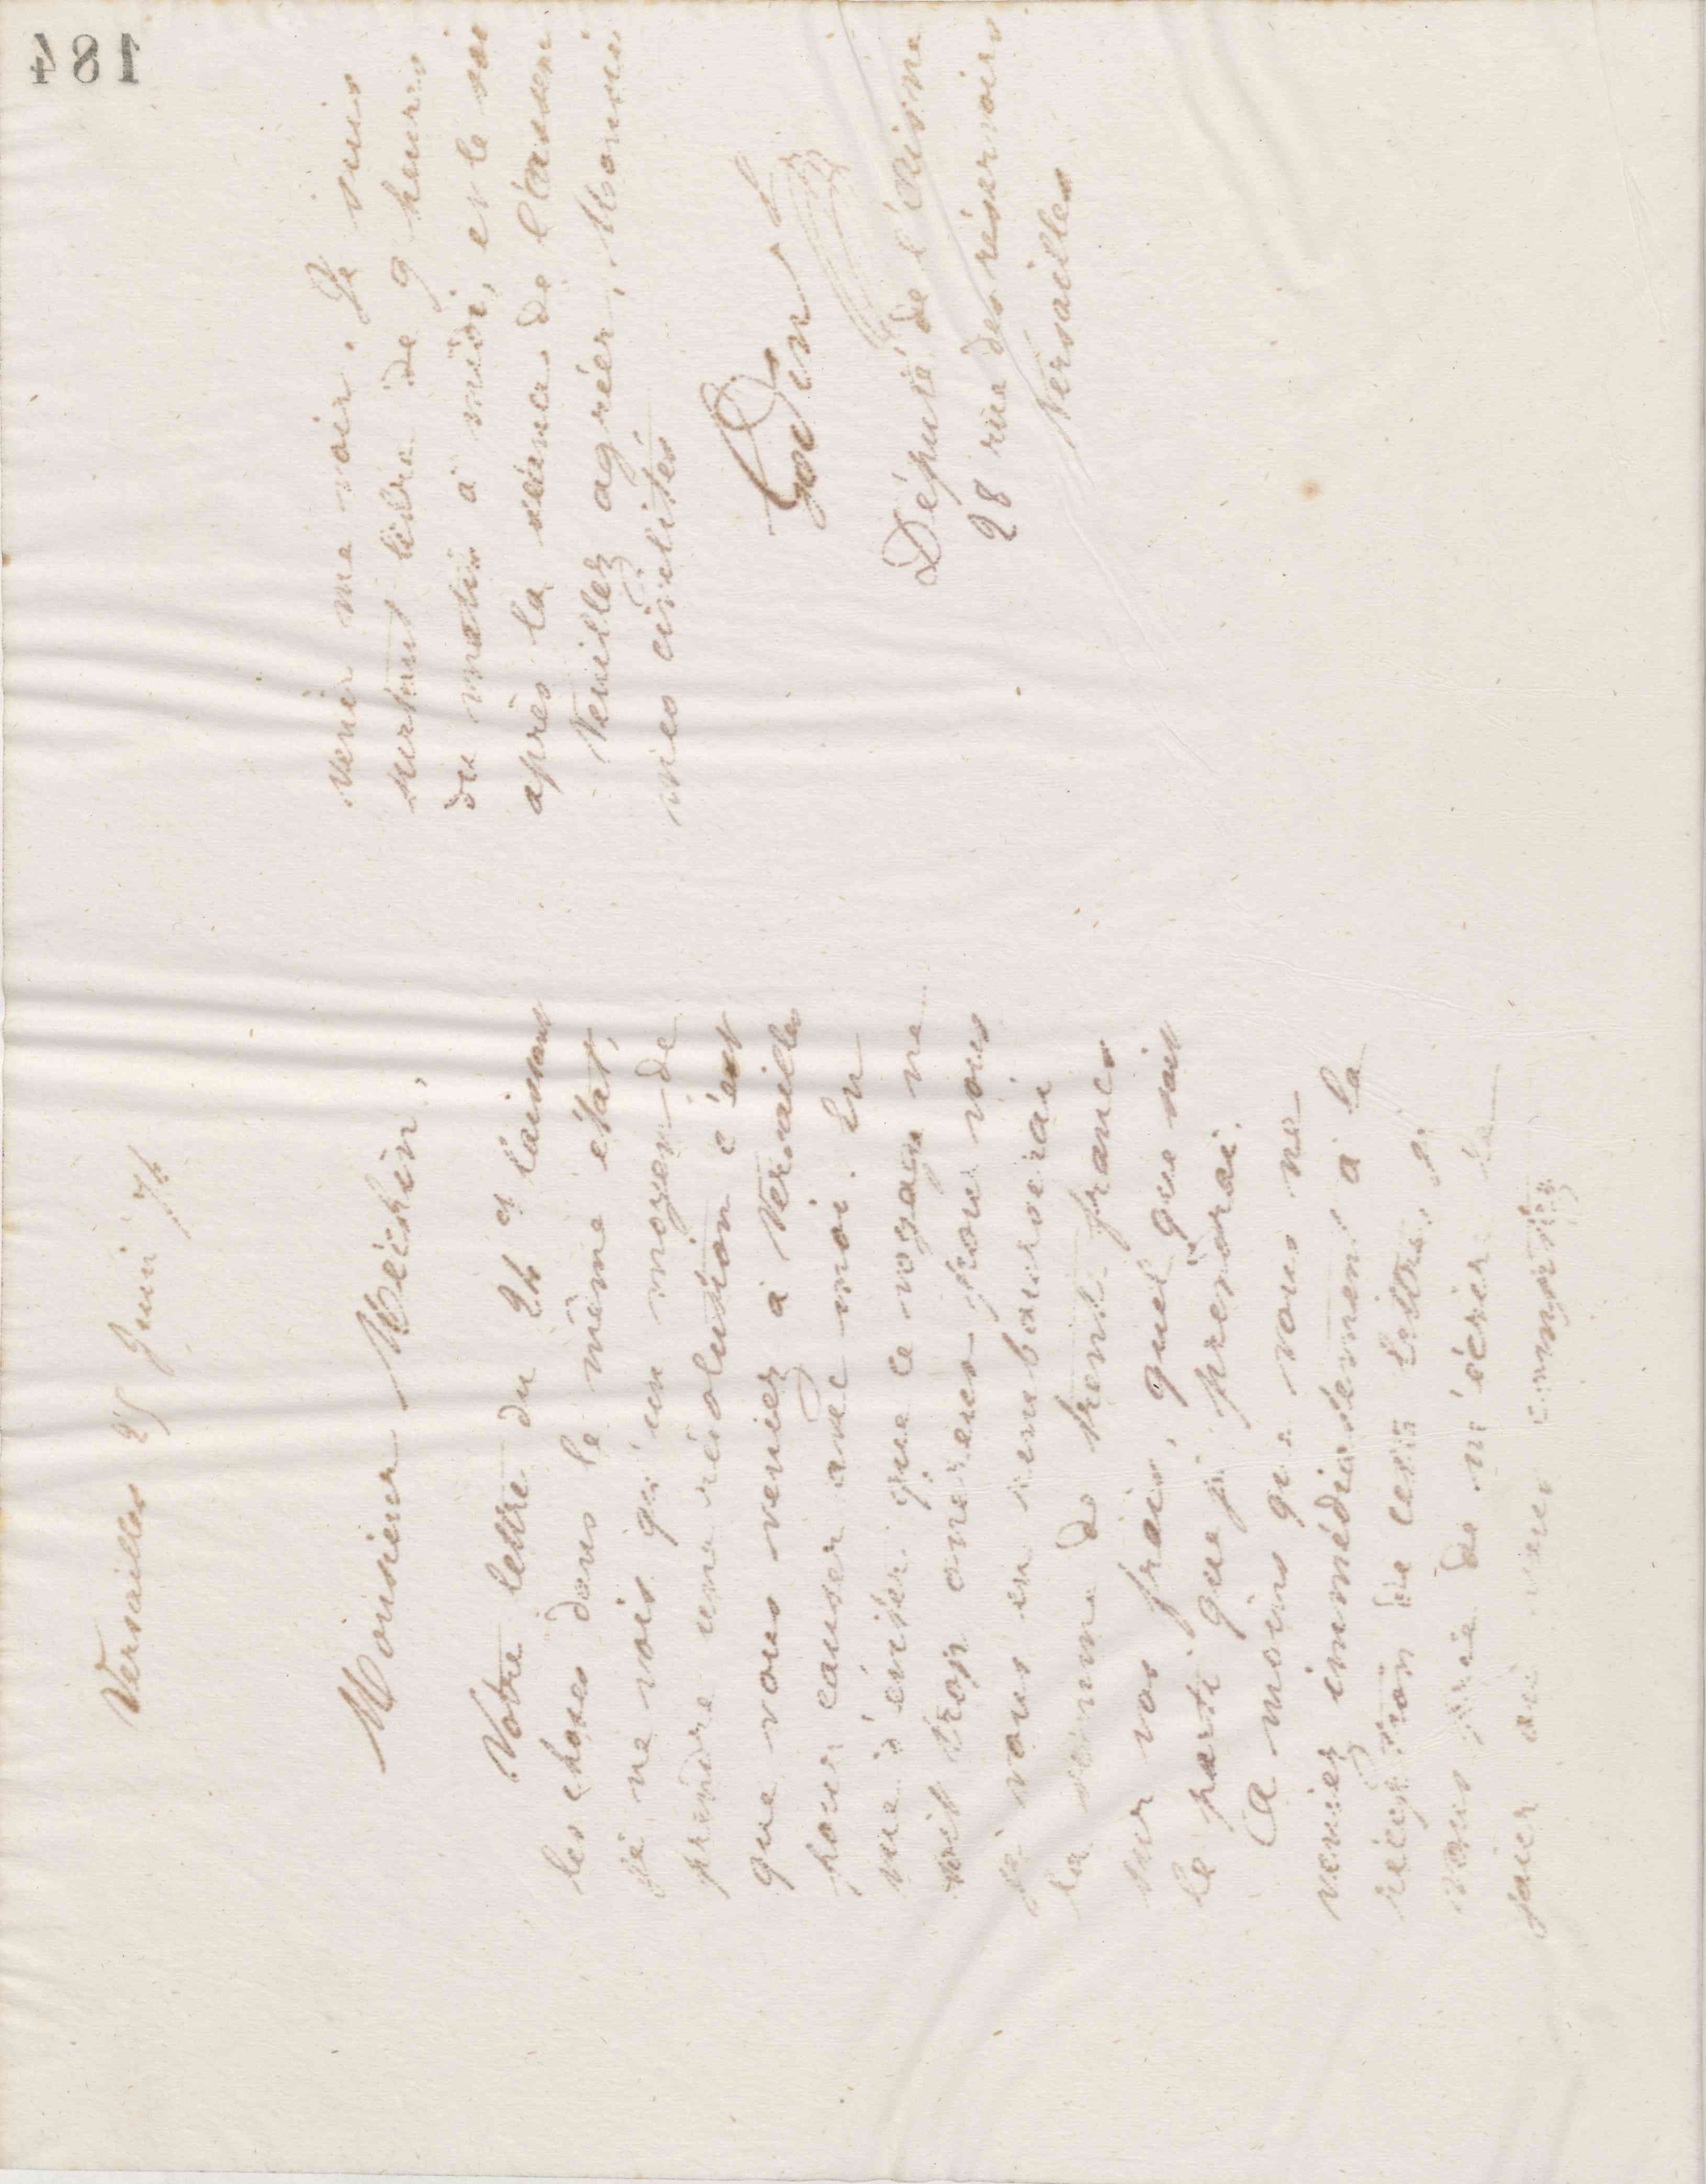 184
Versailles 25 Juin 74
Monsieur Méchin,
Votre lettre du 24 ct laissant
les choses dans le même état,
je ne vois qu'un moyen de
prendre une résolution c'est
que vous veniez à Versailles
pour causer avec moi. En
vue d'éviter que ce voyage ne
soit trop onéreux pour vous
je vous en rembourserai
la somme de trente francs
sur vos frais, quel que soit
le parti que je prendrai.
A moins que vous ne
veniez immédiatement à la
réception de cette lettre, je
vous prie de m'écrire le
jour où vous comptez
venir me voir. Je suis
surtout libre de 9 heures
du matin à midi, et le soir
après la séance de l'assem
Veuillez agréer, Monsieur
mes civilités
Godin
Député de l'Aisne
28 rue des réservoirs
Versailles